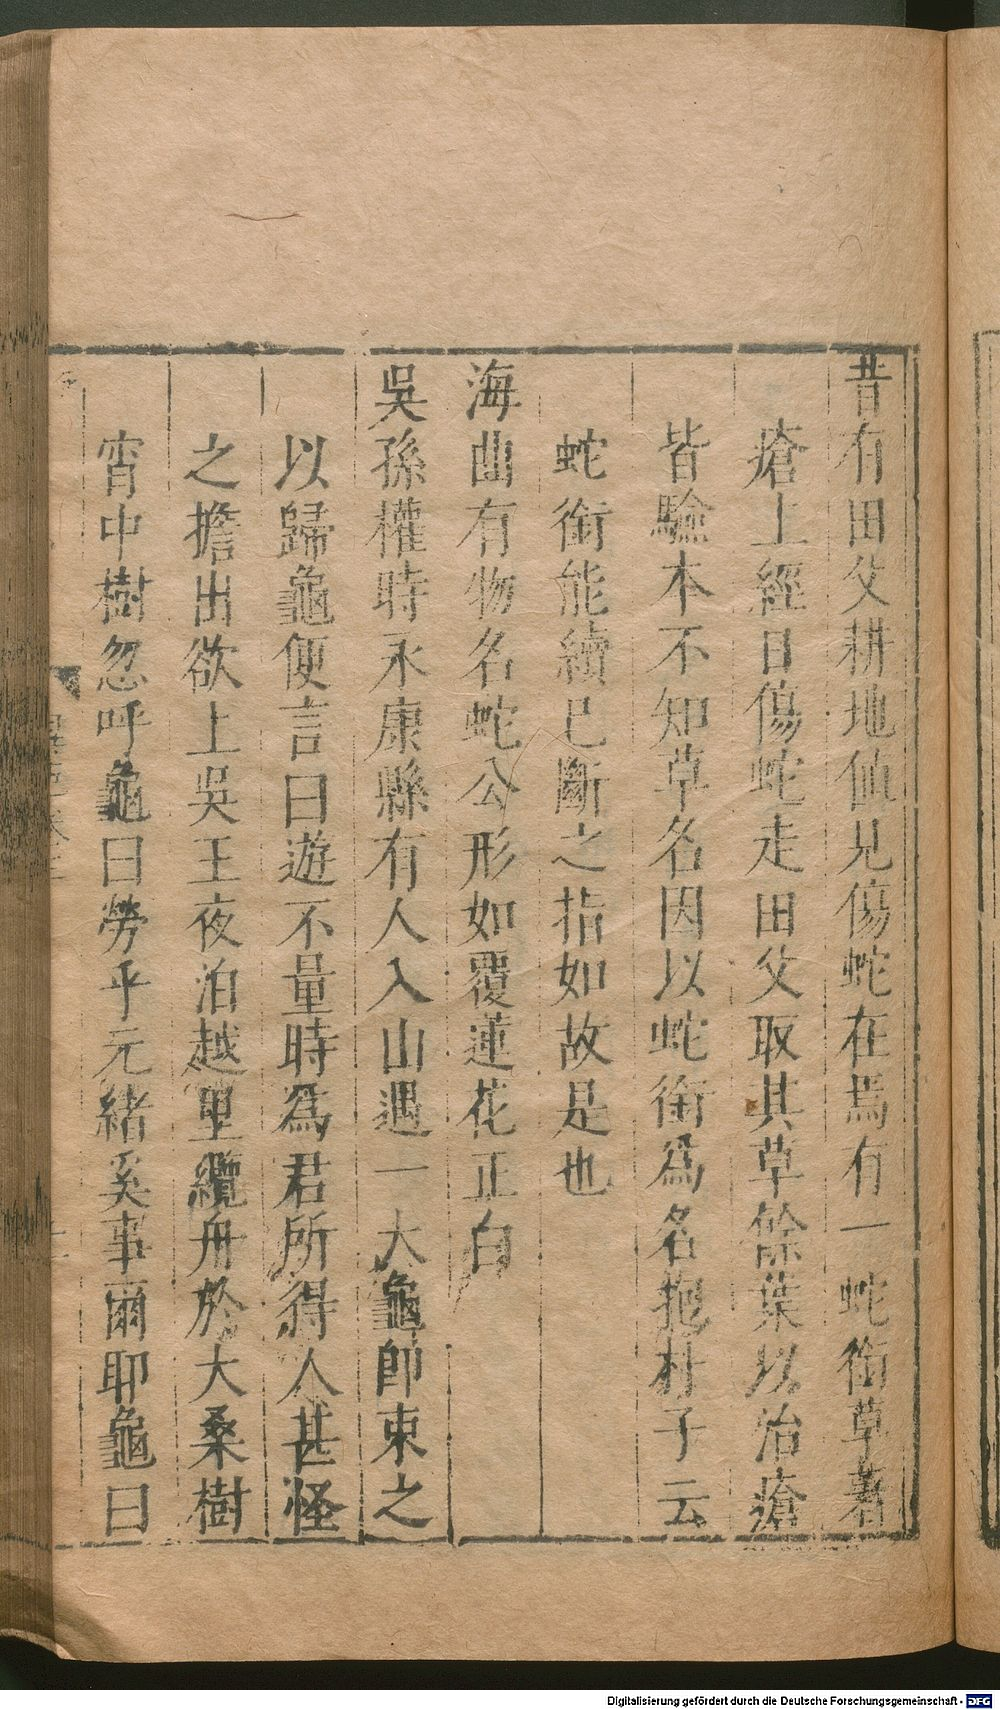 昔有田父耕地值見傷蛇在焉有一蛇銜草著
瘡上經日傷蛇走田父取其草餘葉以治瘡
皆驗本不知草名因以蛇銜爲名抱朴子云
蛇銜能續已斷之指如故是也
海曲有物名蛇公形如覆蓮花正白
吳孫權時永康縣有人入山遇一大龜卽束之
以歸龜便言曰遊不量時爲君所得人甚怪
之擔出欲上吳王夜泊越里纜舟於大桑樹
宵中樹忽呼龜曰勞乎元緒奚事爾耶龜曰
Digitalisierung gefördert durch die Deutsche Forschungsgemeinschaft - DFG